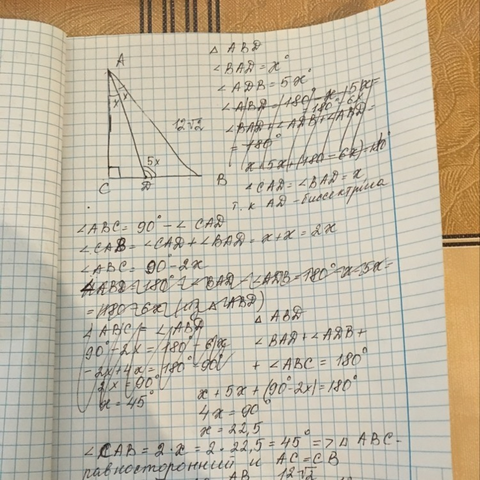 A
x x
12√2
5x
C D B
△ ABD
∠BAD = x°
∠ADB = 5x°
∠ABD = 180° - x - 5x =
= 180° - 6x
∠BAD + ∠ADB + ∠ABD =
= 180°
x + 5x + (180 - 6x) = 180°
∠CAD = ∠BAD = x
т. к AD - биссектриса
∠ABC = 90° - ∠ CAD
∠CAB = ∠CAD + ∠BAD = x + x = 2x
∠ABC = 90° - 2x
∠ABD = 180° - ∠BAD - ∠ADB = 180° - x - 5x =
= 180 - 6x (из △ ABD)
∠ ABC = ∠ABD
90° - 2x = 180° - 6x
-2x + 4x = 180° - 90°
2x = 90°
x = 45°
△ ABD
∠BAD + ∠ADB +
+ ∠ABC = 180°
x + 5x + (90° - 2x) = 180°
4x = 90°
x = 22,5
∠CAB = 2 · x = 2 · 22,5 = 45° => △ ABC -
равносторонний и AC = CB
AB 12√2